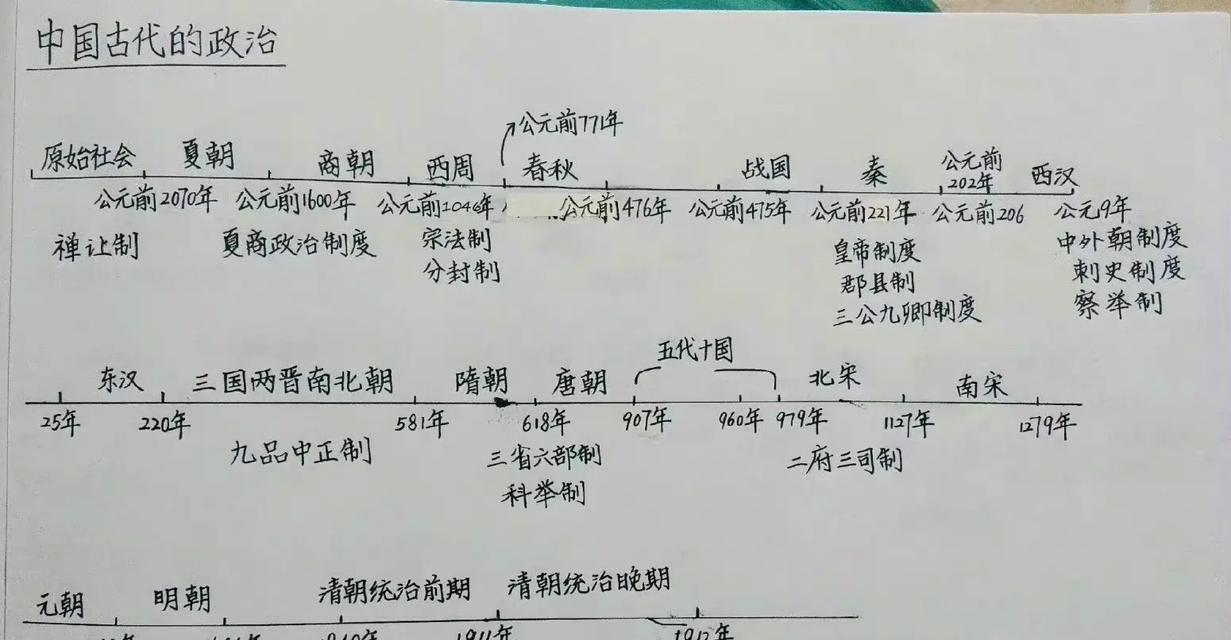 中国古代的政治
公元前771年
原始社会 夏朝 商朝 西周 春秋 战国 秦 公元前202年 西汉
公元前2070年 公元前1600年 公元前1046年 公元前476年 公元前475年 公元前221年 公元前206 公元9年
禅让制 夏商政治制度 宗法制 皇帝制度 中外朝制度
分封制 郡县制 刺史制度
三公九卿制度 察举制
五代十国
东汉 三国两晋南北朝 隋朝 唐朝 北宋 南宋
25年 220年 581年 618年 907年 960年 979年 1127年 1279年
九品中正制 三省六部制 二府三司制
科举制
元朝 明朝 清朝统治前期 清朝统治晚期
1911年 1912年